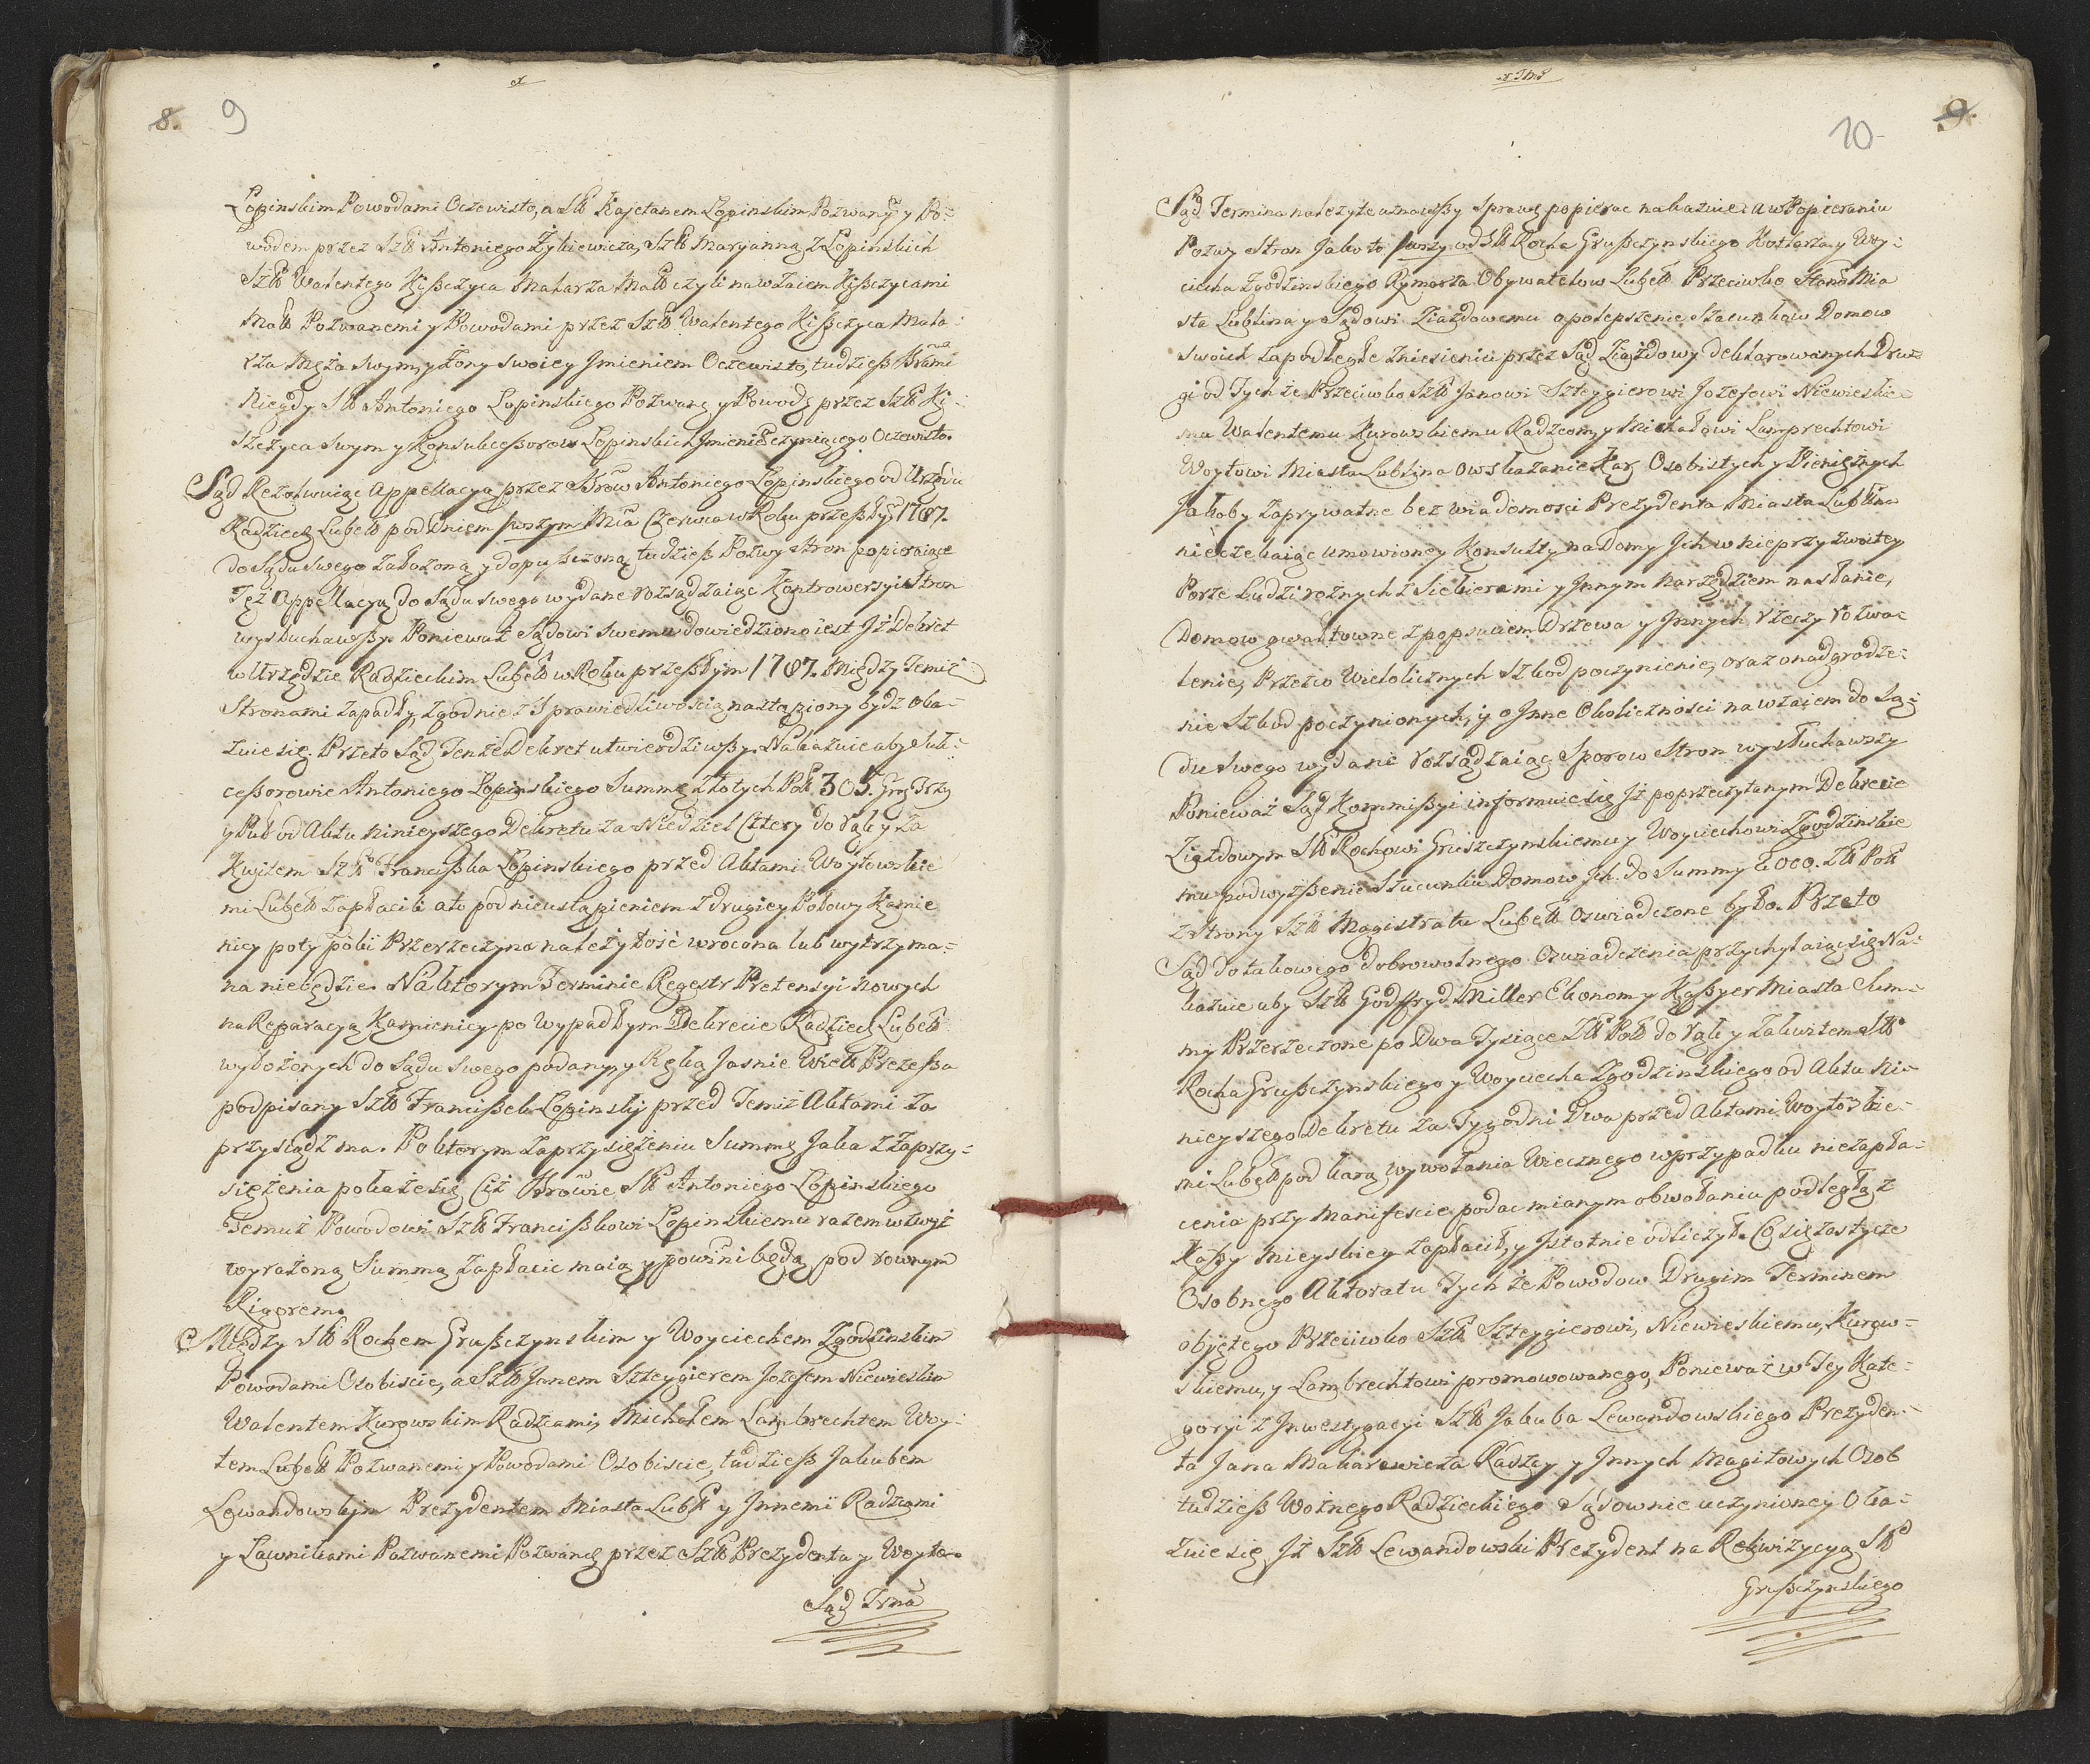 8. 9
Łopinskim Powodami Oczewisto, a Szł Kajetanem Łopinskim Pozwanÿ y Po=
wodem przez Szł Antoniego Żykiewicza, Szł Maryanną z Łopinskich
Szł Walentego Kißczyca Malarza Małł czyli nawzaiem Kißczycami
Małł Pozwanemi y Powodami przez Szł Walentego Kißczyca Mala=
rza Męża swym, y Żony swoiey Jmieniem Oczewisto, tudzieß
Niegdy Sł Antoniego Lopinskiego Pozwane y Powody przez Szł Ki=
szczyca swym y Konsukceßorow Łopinskich Jmieniem czyniącego Oczewisto.
Sąd Rezolwuiąc Appellacyą przez Antoniego Łopinskiego od Urzędu
Radziec Lubełł pod Dniem 1wszym Mca Czerwca w Roku przeßłÿ 1787.
do Sądu swego założoną y dopußczoną, tudzieß Pozwy stron popieraiące
Też Appellacyą do Sądu swego wydane rozsądzaiąc Kontrowersyi Stron
wysłuchawßy. Ponieważ Sądowi swemu dowiedziono iest Jż Dekret
w Urzędzie Radzieckim Lubełł w Roku przeßłym 1787. między temiż
Stronami zapadły, zgodnie z Sprawiedliwością nastąpiony bydz oka=
zuie się. Przeto Sąd Tenże Dekret utwierdziwßy. Nakazuie aby Suk=
ceßorowie Antoniego Łopinskiego Summę złotych Poł 305. Gro Trzy
y Puł od Aktu ninieyszego Dekretu za Niedziel Cztery do rąk y za
Kwitem Szł Francißka Łopinskiego przed Aktami Woytowskie
mi Lubełł zapłacili ato pod nieustąpieniem z drugiey Połowy Kamie
nicy poty poki Przerzeczyna należytość wrocona lub wytrzyma=
na niebędzie. Naktorym Terminie Regestr Pretensyi nowych
na Reparacyą Kamienicy po wypadłym Dekrecie Radziec Lubełł
wyłożonych do Sądu swego podany, y Ręką Jasnie Wiel Prezeßa
podpisany Szł Francißek Łopinski przed Temiż Aktami za
przysiądz ma. Po ktorym zaprzysiężeniu Summę Jaka z zaprzy=
siężenia pokaże się Ciż Sł Antoniego Lopinskiego
Temuż Powodowi Szł Francißkowi Lopinskiemu razem wzwyż
wyrażoną Summą zapłacic maią y powinni będą, pod rownym
Rigorem.
Między Sł Rochem Grußczynskim y Woyciechem Zgodzinskim
Powodami Osobiscie, a Szł Janem Szteygierem Jozefem Niewieskim
Walentem Kurowskim Radzcami, Michałem Lambrechtem Woy=
tem Lubełł Pozwanemi y Powodami Osobiscie, tudzieß Jakubem
Lewandowskym Prezydentem Miasta Lubł y Jnnemi Radzcami
y Lawnikami Pozwanemi Pozwanÿ przez Szł Prezydenta y Woyta.
Sąd Trna
10 9.
Sąd Termina należyte uznawßy Sprawę popierac nakazuie: a w Popieraniu
Pozwy Stron Jakoto 1wszy od Sł Rocha Grußczynskiego Kotlarza y Woy=
ciecha Zgodzinskiego Rymarza Obywatelow Lubełł Przeciwko Mia
sta Lublina y Sądowi Ziazdowemu o polepszenie Szacunkow Domow
swoich zapodległe zniesieniu przez Sąd Ziazdowy deklarowanych Dru=
gi od Tychże Przeciwko Szł Janowi Szteygierowi Jozefowi Niewieskie=
mu Walentemu Kurowskiemu Radzcom, y Michałowi Lamprechtowi
Woytowi Miasta Lublina o wskazanie kar Osobistych y Pieniężnych
Jakoby zaprywatne bez wiadomosci Prezydenta Miasta Lublina
nieczekaiąc umowioney Konsulty na Domy Jch w nieprzyzwoitey
Porze Ludzi rożnych z Siekierami y Jnnym narzędziem nasłanie,
Domow gwałtowne z popsuciem Drzewa y Jnnych rzeczy rozwa=
lenie, Przezco Wielolicznych Szkod poczynienie, oraz o nadgrodze=
nie Szkod poczynionych, y o Jnne Okoliczności nawzaiem do Są=
du swego wydane rozsądzaiąc Sporow Stron wysłuchawszy
Ponieważ Sąd Kommißyi informuie się Jż poprzeczytanym Dekrecie
Ziazdowym Sł Rochowi Grußczynskiemu y Woyciechowi Zgodzinskie
mu podwyżßenie Szacunku Domow Jch do Summy 2000. Zł Poł
z Strony Szł Magistratu Lubełł oswiadczone było. Przeto
Sąd do takowego dobrowolnego Oswiadczenia przychylaiąc się Na=
kazuie aby Szł Godffryd Miller Ekonom y Kaßyer Miasta Sum=
my Przerzeczone po Dwa Tysiące Zł Poł do rąk y za kwitem Sł
Rocha Grußczynskiego y Woyciecha Zgodzinskiego od Aktu ni=
nieyszego Dekretu za Tygodni Dwa przed Aktami Woytowskie=
mi Lubełł pod karą wywołania Wiecznego w przypadku niezapła=
cenia przy Manifescie podac mianym obwołaniu podległą z
Kaßy Mieyskiey zapłacił, y Jstotnie odliczył. Co się zas tycze
Osobnego Aktoratu Tychże Powodow Drugim Terminem
objętego Przeciwko Szł Szteygierowi, Niewieskiemu, Kurow=
skiemu, y Lambrechtowi promowowanego, Ponieważ w Tey Kate=
goryi z Jnwestygacyi Szł Jakuba Lewandowskiego Prezyden=
ta Jana Makarewicza Radzcy y Jnnych Magitowych Osob
tudzieß Woznego Radzieckiego Sądownie uczynioney Oka=
zuie się Jż Szł Lewandowski Prezydent na Rekwizycyą Sł
Grußczynskiego